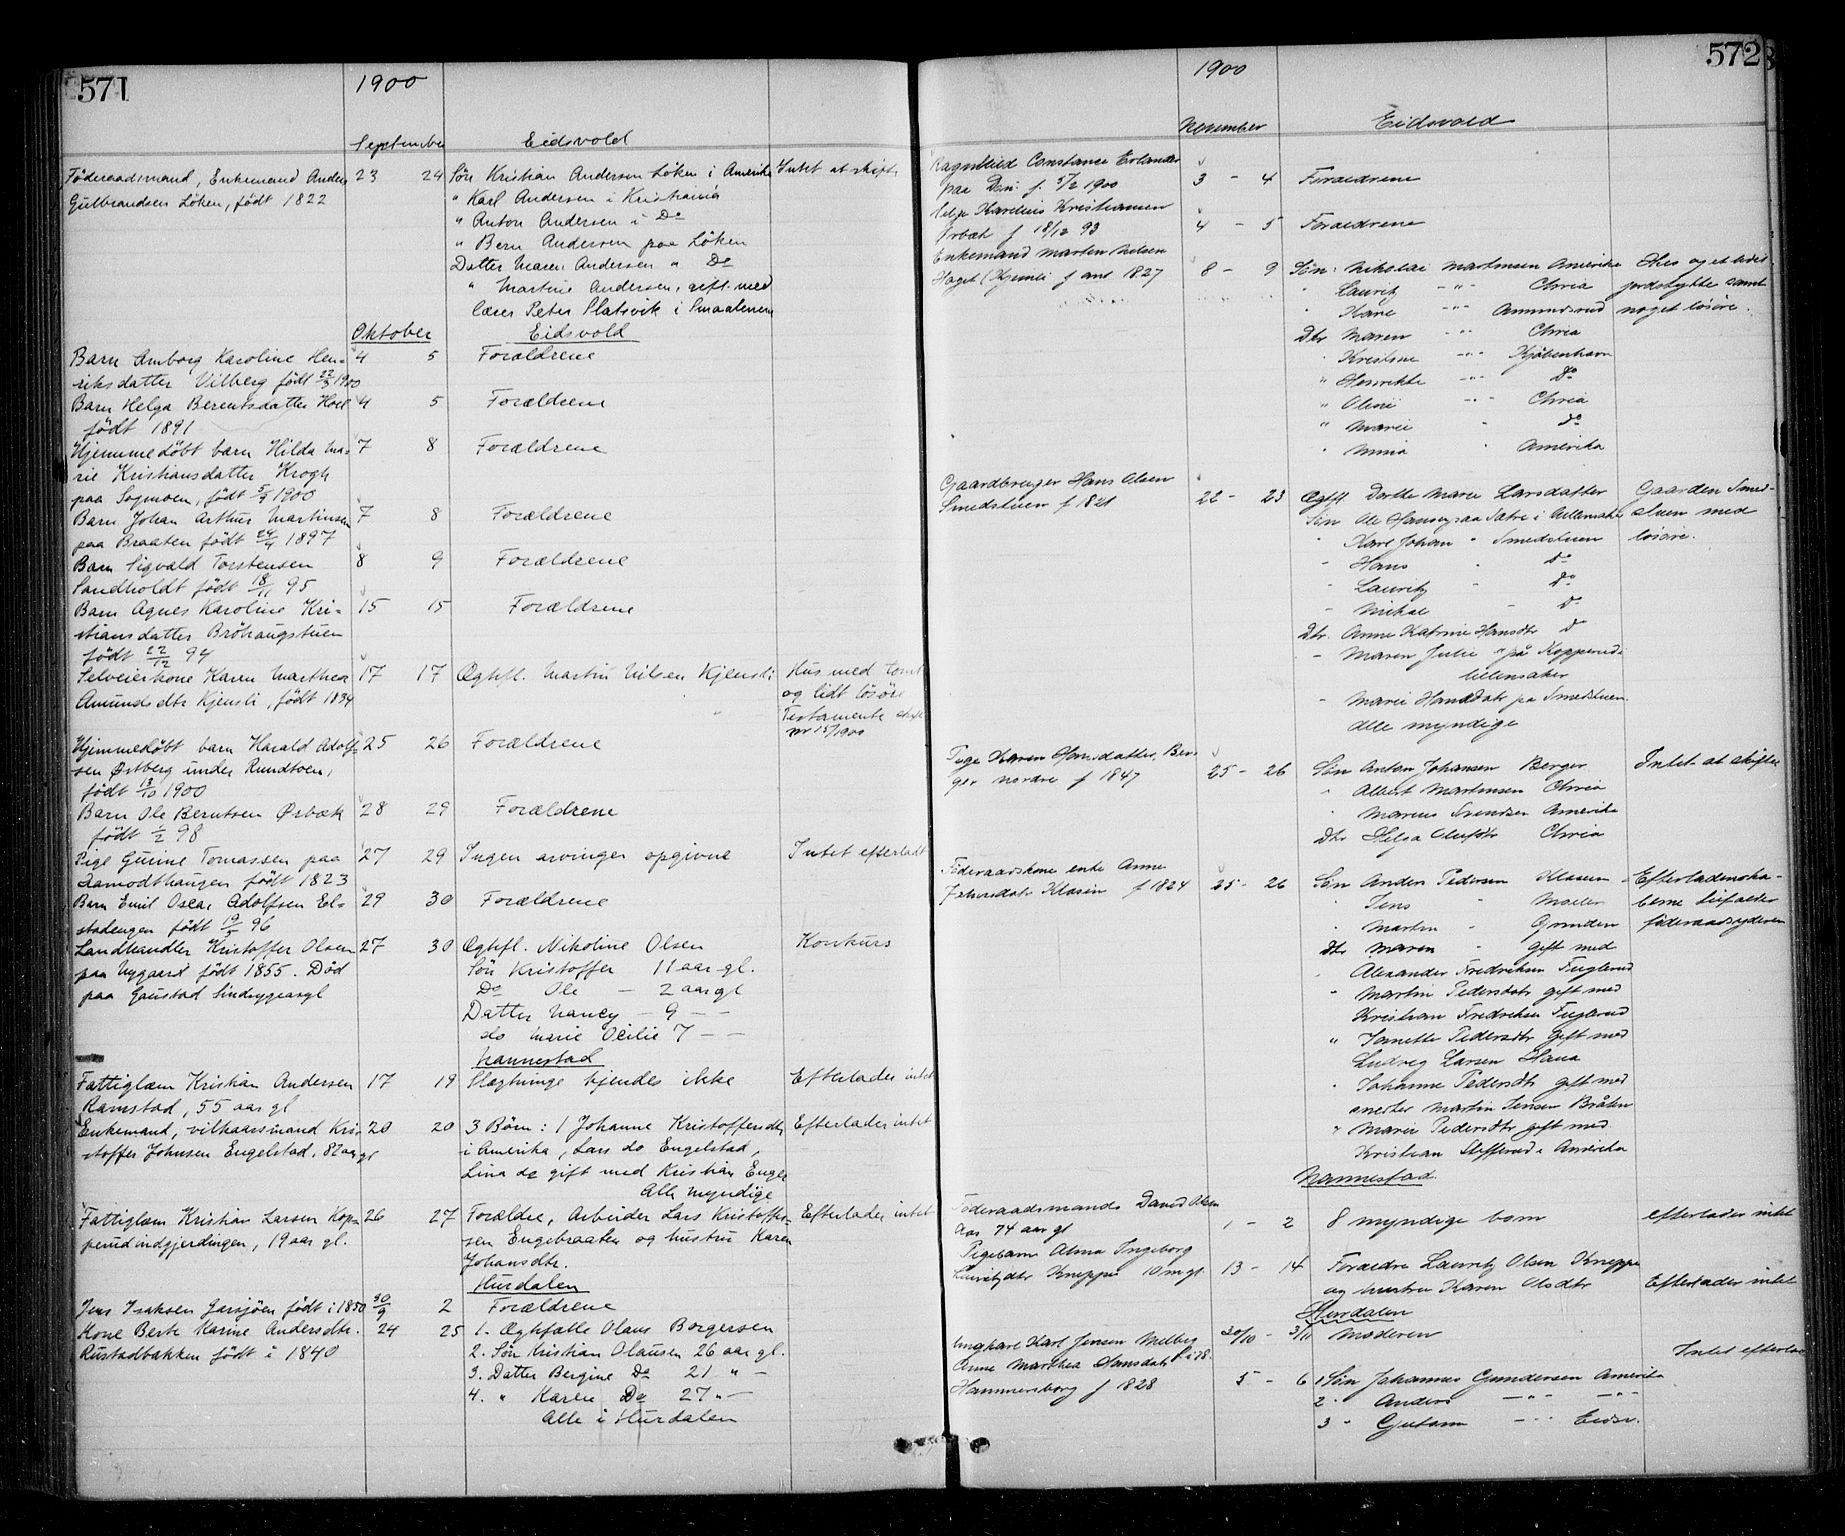 571
1900
September
Eidsvold
Föderaadsmand, Enkemand Anders 23 24 Sön Kristian Andersen Löken i Amerika Intet at skifte
Gulbrandsen Löken, födt 1822 " Karl Andersen i Kristiania
" Anton Andersen i Do
" Bern Andersen paa Löken
Datter Maren Andersen " Do
" Martine Andersen, gift med
lærer Peter Slatsvik i Smaalenene
Oktober Eidsvold
Barn Amborg Karoline Hen- 4 5 Forældrene
riksdatter Vilberg födt 22/3 1900
Barn Helga Berentsdatter Hoel 4 5 Forældrene
födt 1891
Hjemmedöbt barn Hilda Ma- 7 8 Forældrene
rie Kristiansdatter Krogh
paa Sogmoen, födt 5/9 1900
Barn Johan Arthur Martinsen 7 8 Forældrene
paa Braaten födt 24/4 1897
Barn Sigvald Torstensen 8 9 Forældrene
Sandholdt födt 18/11 95
Barn Agnes Karoline Kri- 15 15 Forældrene
stiansdatter Bröhaugstuen
födt 22/12 94
Selveierkone Karen Marthea 17 17 Ægtef. Martin Nilsen Kjensli Hus med tomt
Amundsdtr Kjensli, födt 1834 og lidt lösöre
Testamente skifte
nr 15/1900
Hjemmedöbt barn Harald Adolf- 25 26 Forældrene
sen Østberg under Rundtoen,
födt 13/10 1900
Barn Ole Berntsen Ørbæk 28 29 Forældrene
födt 1/2 98
Pige Gurine Tomassen paa 27 29 Ingen arvinger opgivne Intet efterladt
Aamodthaugen födt 1823
Barn Emil Oscar Adolfsen El- 29 30 Forældrene
stadengen födt 19/5 96
Landhandler Kristoffer Olsen 27 30 Ægtef. Nikoline Olsen Konkurs
paa Nygaard födt 1855. Död Sön Kristoffer 11 aar gl.
paa Gaustad Sindsygeasyl Do Ole - 2 aar gl
Datter Nancy - 9 - -
do Marie Ocilie 7 - -
Nannestad
Fattiglem Kristian Andersen 17 19 Slægtninge kjendes ikke Efterlader intet
Ramstad, 55 aar gl
Enkemand, vilkaarsmand Kri- 20 20 3 Börn: 1 Johanne Kristoffersdtr Efterlader intet
stoffer Johnsen Engelstad, 82 aar gl i Amerika, Lars do Engelstad,
Lina do gift med Kristian Engel
Alle myndige
Fattiglem Kristian Larsen Kop- 26 27 Forældre, Arbeider Lars Kristoffer- Efterlader intet
perudindgjerdingen, 19 aar gl. sen Engebraaten og hustru Karen
Johansdtr.
Hurdalen
Jens Isaksen Garsjöen födt i 1850 30/9 2 Forældrene
Kone Berte Karine Andersdtr. 24 25 1. Ægtefælle Olaus Borgersen
Rustadbakken födt i 1840 2. Sön Kristian Olausen 26 aar gl.
3. Datter Bergine Do 21 " -
4. " Karen Do 27 " -
Alle i Hurdalen
572
1900
November
Eidsvold
Ragnhild Constance Erlandsr 3 - 4 Foraeldrene
paa f. 5/2 1900
Helge Karelius Kristiansen
Ørbæk f 18/12 93 4 - 5 Foraeldrene
Enkemand Marten Nilsen
Haget (Kjensli f ant 1827 8 - 9 Sön: Nikolai Martinsen Amerika Hus og et lidet
" Lauritz -"- Chria jordstykke samt
" Hans -"- Ammundsrud noget lösöre.
Dtr Maren -"- Chria
" Kristine -"- Kjöbenhavn
" Henrikke -"- Do
" Oline -"- Chria
" Marie do
" Mina " Amerika
Gaardbruger Hans Olsen
Smedstuen f 1821 22 - 23 Ægtf. Dorthe Marie Larsdatter Gaarden Smed-
Sön Ole Hansen paa Sætre i Ullensaker stuen med
" Karl Johan " Smedstuen lösöre.
" Hans " do
" Lauritz " Do
" Mikal - D-
Dtr. Anne Katrine Hansdtr D-
- Maren Julie " på Kopperud i
Ullensaker
- Marie Hansdatr på Smedstuen
Alle myndige
Pige Karen Hansdatter, Ber-
ger nordre f 1847 25 - 26 Sön Anton Johansen Berger Intet at skifte
" Albert Martinsen Chria
" Marius Svendsen Amerika
Dtr Helga Olufsdtr Chria
Föderaadskone enke Anne
Pedersdatr Klasen f 1824 25 - 26 Sön Anders Pedersen Klasen Efterladenska-
" Jens " Moelen berne tilfalder
" Martin " Grinden föderaadsyderen
dtr Maren " gift med
Alexander Fredriksen Fuglerud
" Martin Pedersdatr gift med
Kristian Fredriksen Fuglerud
" Janette Pedersdtr gift med
Ludvig Larsen Hana
" Johanne Pedersdtr gift med
snedker Martin Jensen Bråten
" Marie Pedersdtr gift med
Kristian Stefferud i Amerika
Nannestad.
Föderaadsmand David Olsen
Aas 74 aar gl 1 - 2 8 myndige barn efterlader intet
Pigebarn Alma Ingeborg
Lauritzdtr Kneppe 10 m gl. 13 - 14 Foraeldre Lauritz Olsen Kneppe
og hustru Karen Olsdtr Efterlader intet
Hurdalen
Ungkarl Karl Jensen Melby f i 78. 30/10 - 3/11 Moderen
Anne Marthea Hansdatr Intet efterlad
Hammersborg f 1828 5 - 6 1 Sön Johannes Gundersen Amerika
2 " Anders -"- -"-
3 " Gustav -"- Eidsv.